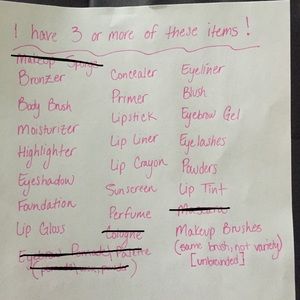 I have 3 or more of these items!
Makeup Sponge
Bronzer
Body Brush
Moisturizer
Highlighter
Eyeshadow
Foundation
Lip Gloss
Eyebrow Pomade/Palette
Concealer
Primer
Lipstick
Lip Liner
Lip Crayon
Sunscreen
Perfume
Cologne
Eyeliner
Blush
Eyebrow Gel
Eyelashes
Powders
Lip Tint
Mascara
Makeup Brushes
(same brush, not variety)
[unbranded]